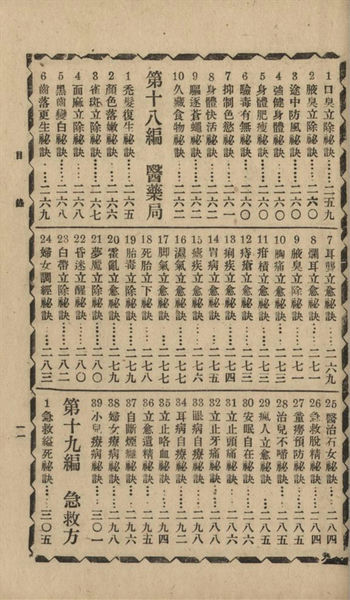 1 口臭立除祕訣……二五九
2 腋臭立除祕訣……二六〇
3 途中防風祕訣……二六〇
4 強健身體祕訣……二六〇
5 身體肥瘦祕訣……二六〇
6 驗毒有無祕訣……二六〇
7 抑制色慾祕訣……二六一
8 身體快活祕訣……二六二
9 驅逐蒼蠅祕訣……二六二
10 久藏食物祕訣……二六二
第十八編 醫藥局
1 禿髮復生祕訣……二六五
2 顏色落嫩祕訣……二六六
3 雀斑立除祕訣……二六七
4 面麻立除祕訣……二六八
5 黑齒變白祕訣……二六八
6 齒落更生祕訣……二六九
7 耳聾立愈祕訣……二六九
8 爛耳立愈祕訣……二七一
9 腋臭立愈祕訣……二七一
10 胸痛立愈祕訣……二七二
11 疳積立愈祕訣……二七三
12 痔瘡立愈祕訣……二七三
13 痢疾立愈祕訣……二七四
14 胃病立愈祕訣……二七五
15 瘧疾立愈祕訣……二七六
16 濕氣立愈祕訣……二七六
17 脚氣立愈祕訣……二七七
18 死胎立下祕訣……二七八
19 胎毒立除祕訣……二七九
20 霍亂立愈祕訣……二七九
21 夢魔立除祕訣……二七九
22 昏迷立醒祕訣……二八一
23 白帶立除祕訣……二八二
24 婦女調經祕訣……二八三
25 醫治石女祕訣……二八四
26 急救脫精祕訣……二八四
27 童癆預防祕訣……二八四
28 治兒不嗜祕訣……二八五
29 瘋人立愈祕訣……二八五
30 安眠自在祕訣……二八六
31 立止頭痛祕訣……二八六
32 立止牙痛祕訣……二八八
33 眼病自療祕訣……二九一
34 耳病自療祕訣……二九二
35 立止咯血祕訣……二九四
36 立愈遺精祕訣……二九五
37 自斷煙癮祕訣……二九六
38 婦女療病祕訣……二九八
39 小兒療病祕訣……三〇一
第十九編 急救方
1 急救縊死祕訣……三〇五
目錄
一二